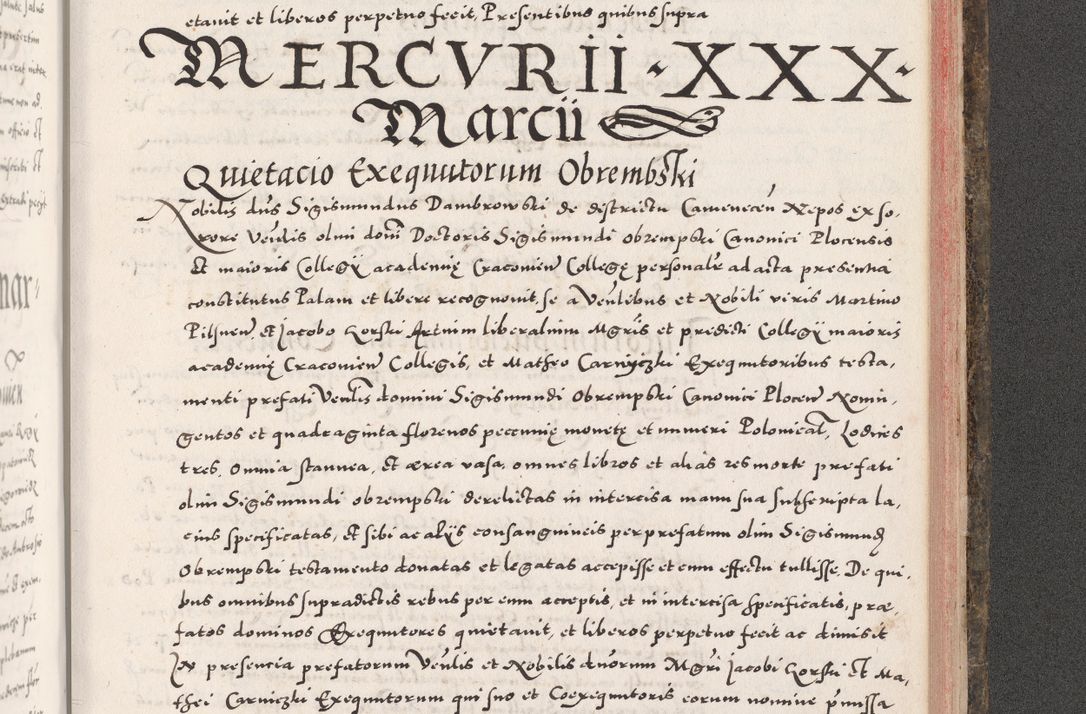 etauit et liberos perpetuo fecit, Presentibus quibus supra
MERCVRII · XXX ·
Marcii
Quietacio Exequutorum Obrembski
Nobilis dns Sigismundus Dambrowski de districtu Camenecen Nepos ex so,
rore Venlis olim domi Doctoris Sigismundi Obrempski Canonici Plocensis
Et maioris Collegij academię Cracovien Collegę personalr ad acta presentia
constitutus Palam et libere recognovit, se a Venlibus et Nobili viris Martino
Pilsnen Et Jacobo Gorski Artium liberalium Mgris et predicti Collegij maioris
academię Cracovien Collegis, et Matheo Carniczki Exequutoribus testa,
menti prefati Venlis domini Sigismundi Obrempski Canonici Plocen Nonin,
gentos et quadraginta florenos peccunię monetę et numeri Polonicalt, Lodices
tres, Omnia stannea, Et ærea vasa, omnes libros et alias res morte prefati
olim Sigismundi obrempski derelictas in intercisa manu sua subscripta la,
cius specificatas, Et sibi ac alijs consanguineis per prefatum olim Sigismund
Obrempski testamento donatas et legatas accepisse et cum effectu tullisse. De qui,
bus omnibus supradictis rebus per eum acceptis, et in intercisa specificatis, præ,
fatos dominos Exequutores quietauit, et liberos perpetuo fecit ac dimisit
In presencia prefatorum Venlis et Nobilis duorum Mgri Jacobi Gorski Et Ma,
thei Carniczki Exequutorum qui suo et Coexequutoris eorum nomine pmissa